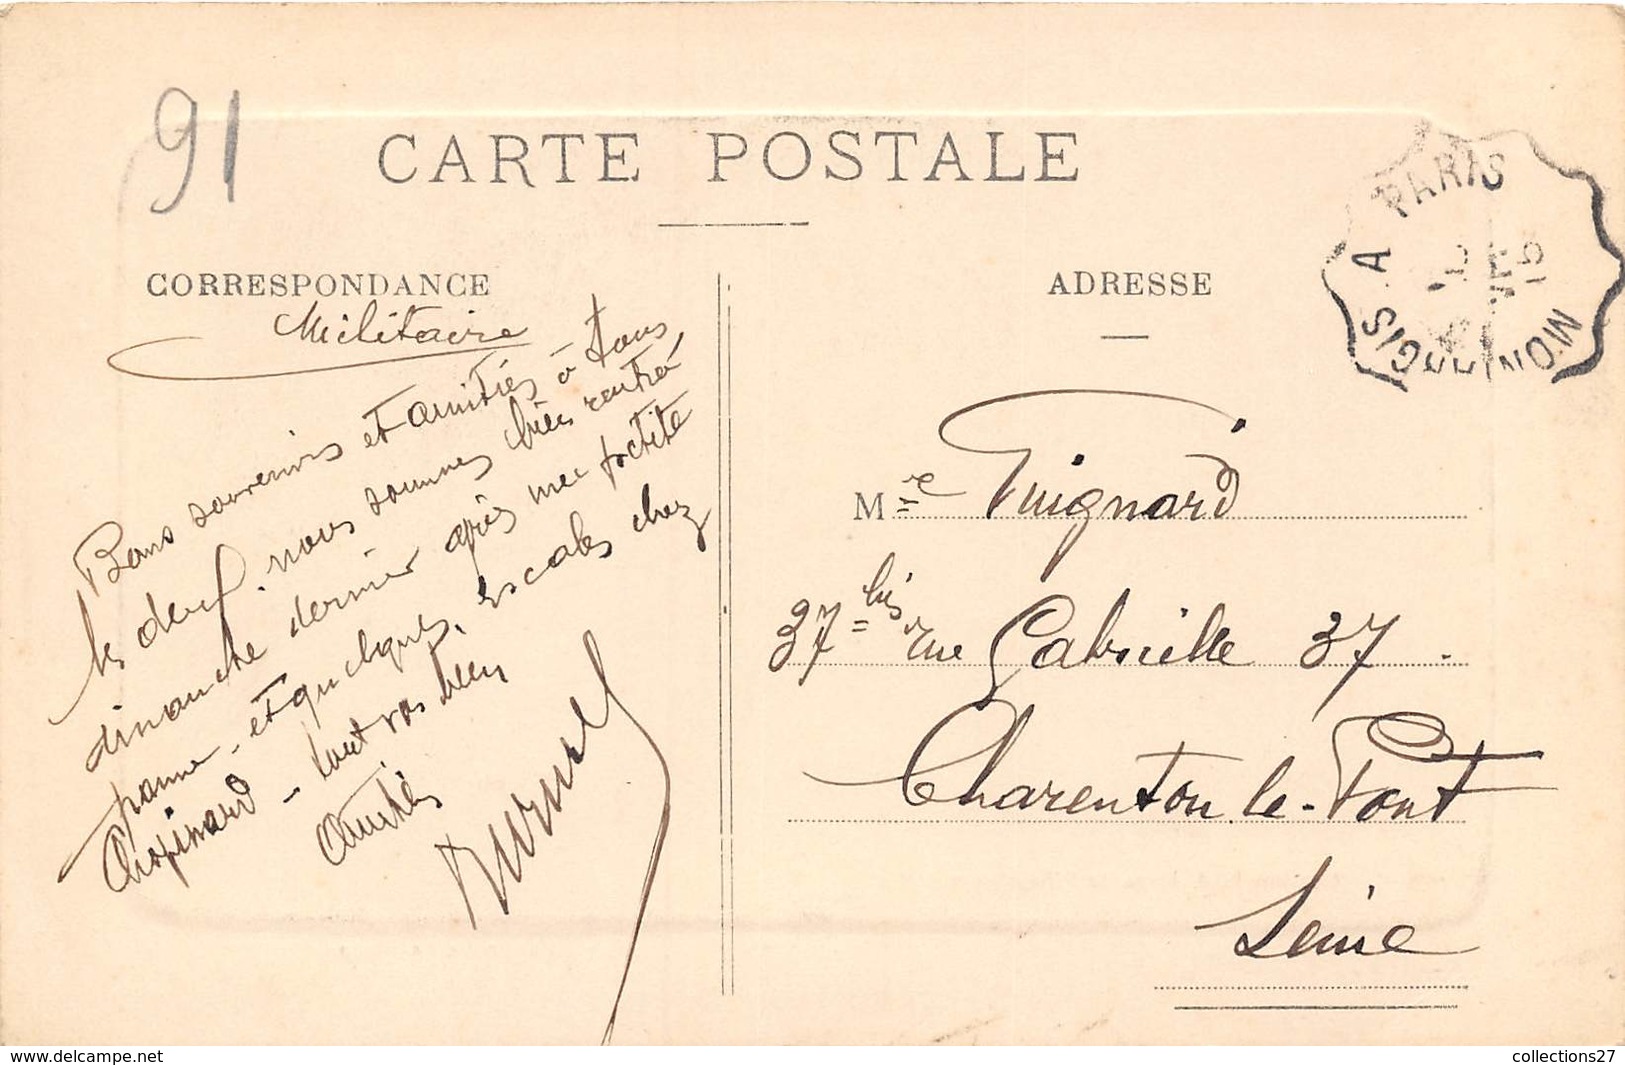 91
CARTE POSTALE
CORRESPONDANCE
Militaire
Bons souvenirs et amitiés à tous
les deux. nous sommes bien rentré
dimanche dernier après une petite
panne - et quelques escales chez
Chopinard - tout va bien
Amitiés
ADRESSE
MONTARGIS A PARIS
15
Mme Guignard
37 bis rue Gabrielle 37
Charenton-le-Pont
Seine
collections27